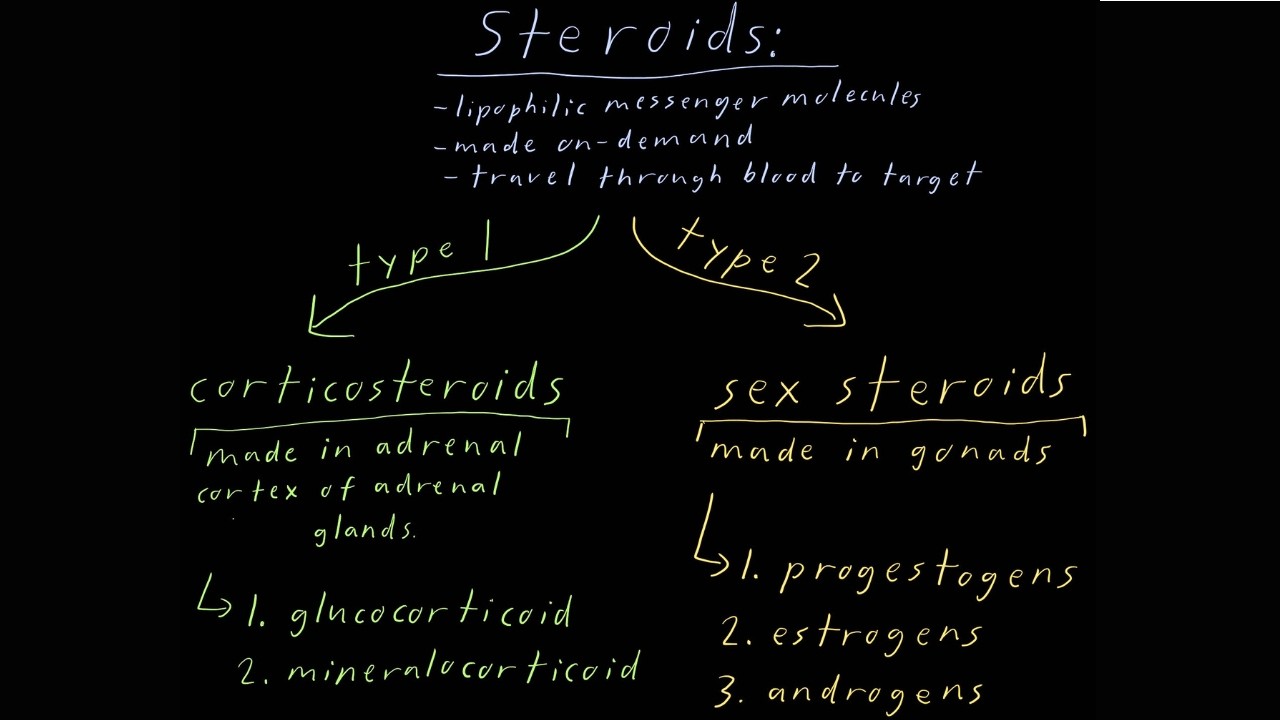 Steroids:
-lipophilic messenger molecules
-made on-demand
-travel through blood to target
type 1
type 2
corticosteroids
made in adrenal
cortex of adrenal
glands.
1. glucocorticoid
2. mineralocorticoid
sex steroids
made in gonads
1. progestogens
2. estrogens
3. androgens